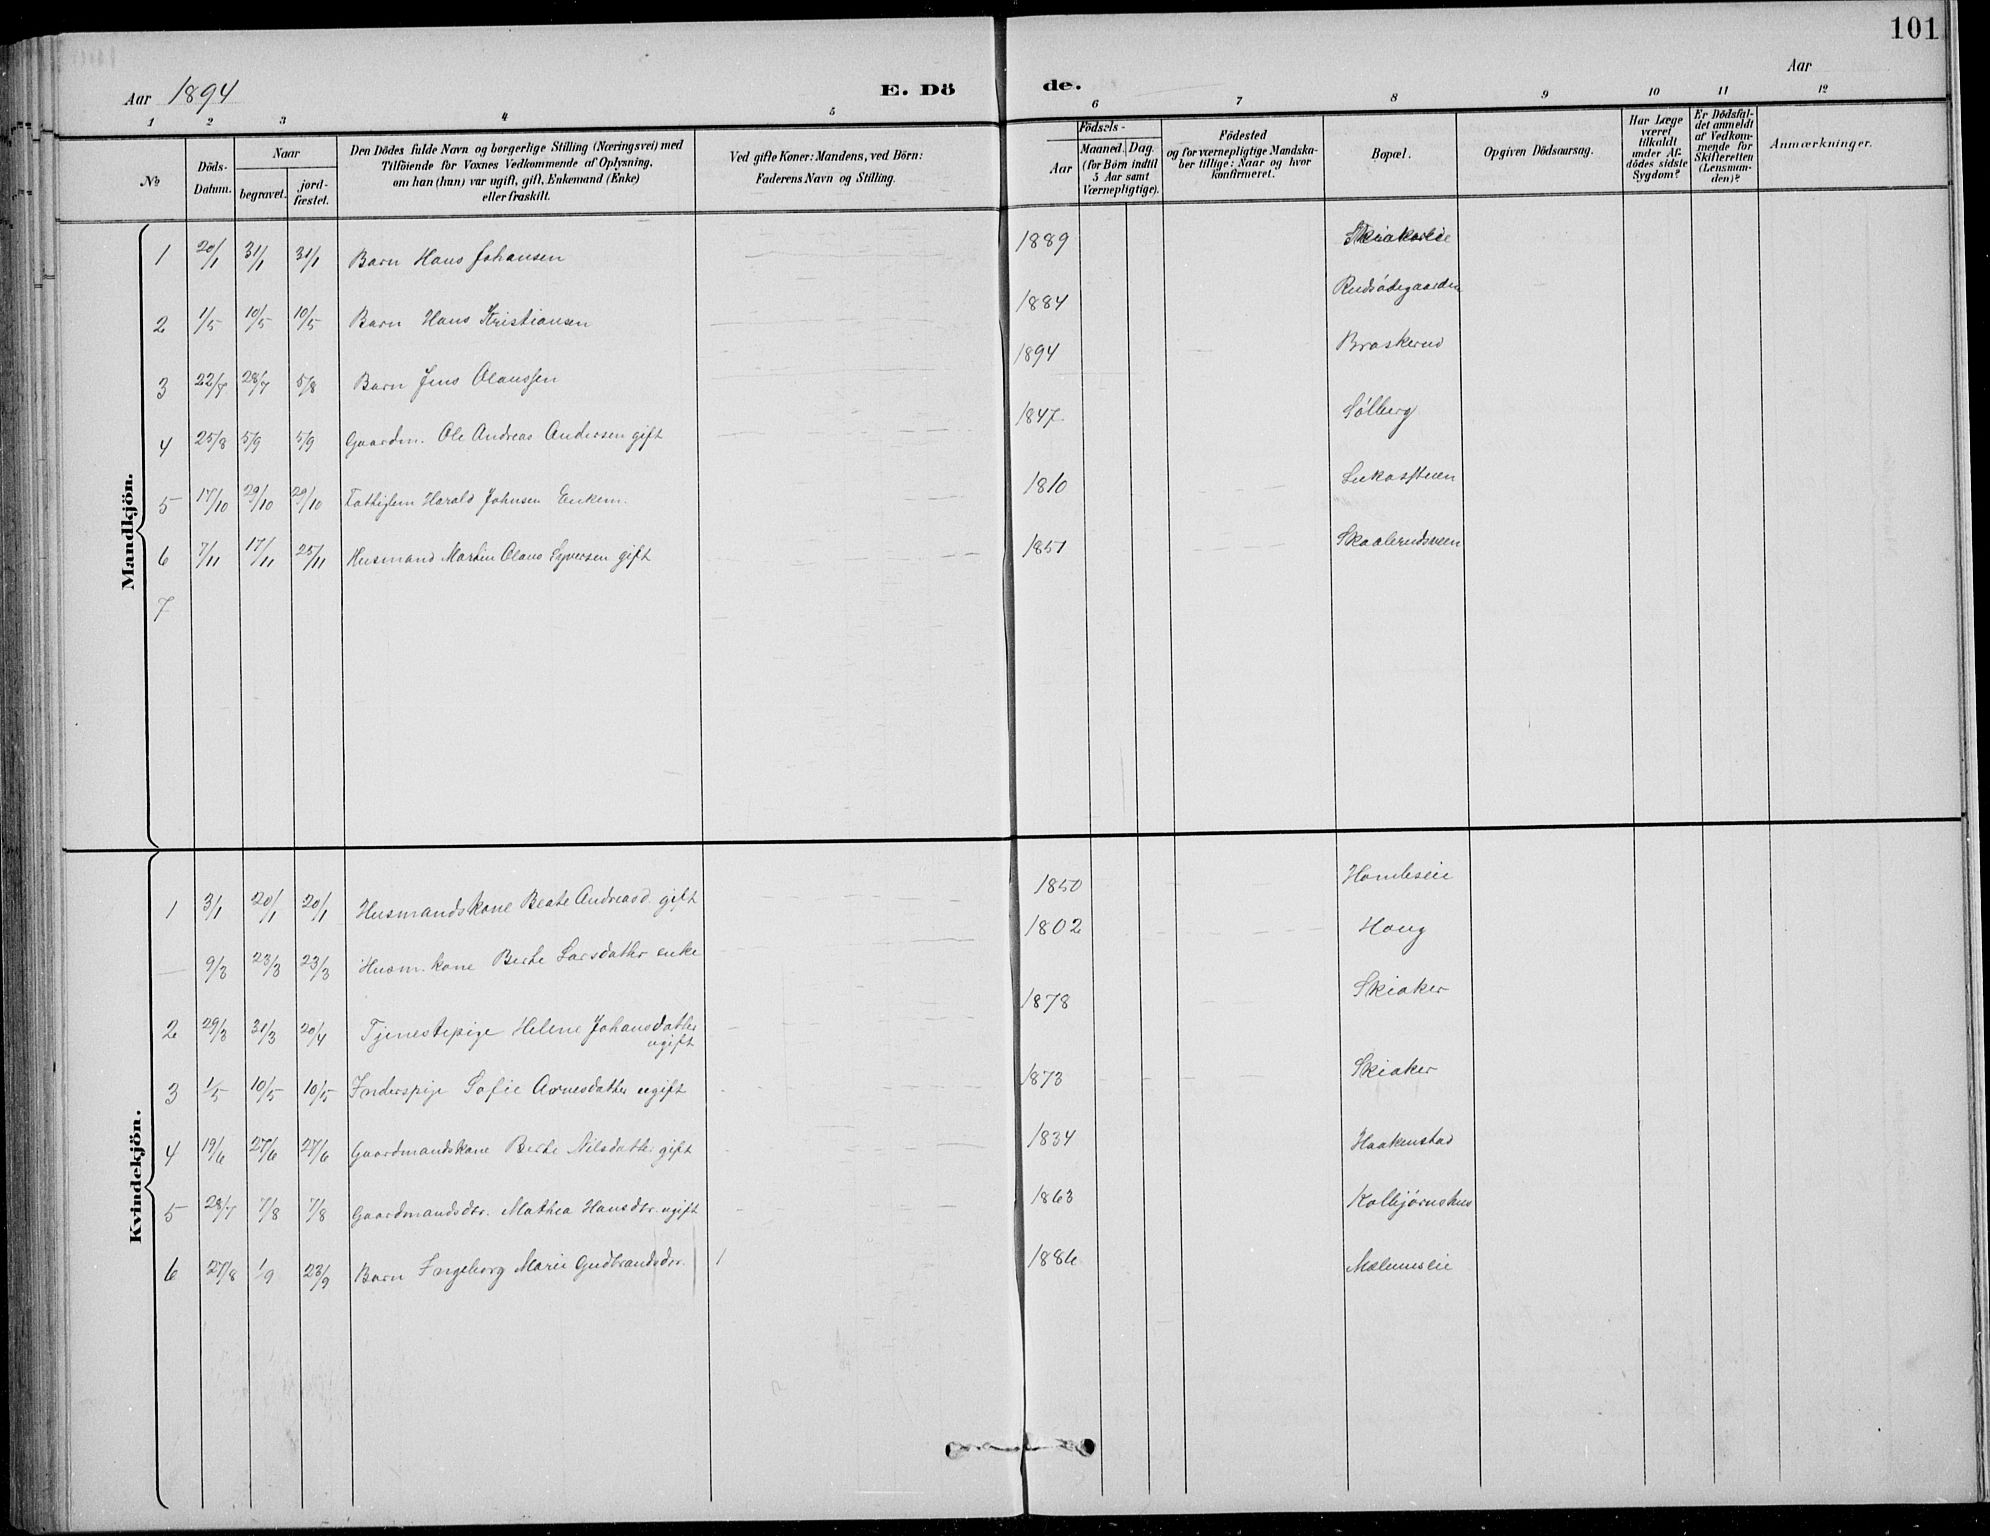 101
Aar 1894 E. Dö de. Aar
1 2 3 4 5 6 7 8 9 10 11 12
No
Döds-Datum.
Naar
begravet.
jordfæstet.
Den Dödes fulde Navn og borgerlige Stilling (Næringsvei) med
Tilföiende for Voxnes Vedkommende af Oplysning,
om han (hun) var ugift, gift, Enkemand (Enke)
eller fraskilt.
Ved gifte Koner: Mandens, ved Börn:
Faderens Navn og Stilling.
Födsels-
Aar
Maaned. Dag.
(for Börn indtil
5 Aar samt
Værnepligtige).
Födested
og for værnepligtige Mandska-
ber tillige: Naar og hvor
konfirmeret.
Bopæl.
Opgiven Dödsaarsag.
Har Læge
været
tilkaldt
under Af-
dödes sidste
Sygdom?
Er Dödsfal-
det anmeldt
af Vedkom-
mende for
Skifteretten
(Lensman-
den)?
Anmærkninger.
Mandkjön.
1 20/1 31/1 31/1 Barn Hans Johansen 1889
2 1/5 10/5 10/5 Barn Hans Kristiansen 1884 Rudsødegaarden
3 22/7 28/7 5/8 Barn Jens Olaussen 1894 Braskerud
4 25/8 5/9 5/9 Gaardm. Ole Andreas Andersen gift 1847 Sólberg
5 17/10 29/10 29/10 Fattiglem Harald Johnsen Enkem. 1810
6 7/11 17/11 25/11 Husmand Martin Olaus Syversen gift 1851 Skaalerudsveen
7
Kvindekjön.
1 3/1 20/1 20/1 Husmandskone Beate Andreasd. gift 1850
— 9/3 23/3 23/3 Husm. kone Berte Larsdatter enke 1802 Houg
2 29/3 31/3 20/4 Tjenestepige Helene Johansdatter ugift 1878 Skiaker
3 1/5 10/5 10/5 Inderspige Sofie Arnesdatter ugift 1873 Skiaker
4 19/6 27/6 27/6 Gaardmandskone Berte Nilsdatter gift 1834 Haakenstad
5 28/7 7/8 7/8 Gaardmandsdtr. Mathea Hansdtr. ugift 1863 Kolbjørnshus
6 27/8 1/9 23/9 Barn Ingeborg Marie Gudbrandsdtr. 1886 Mælumseie